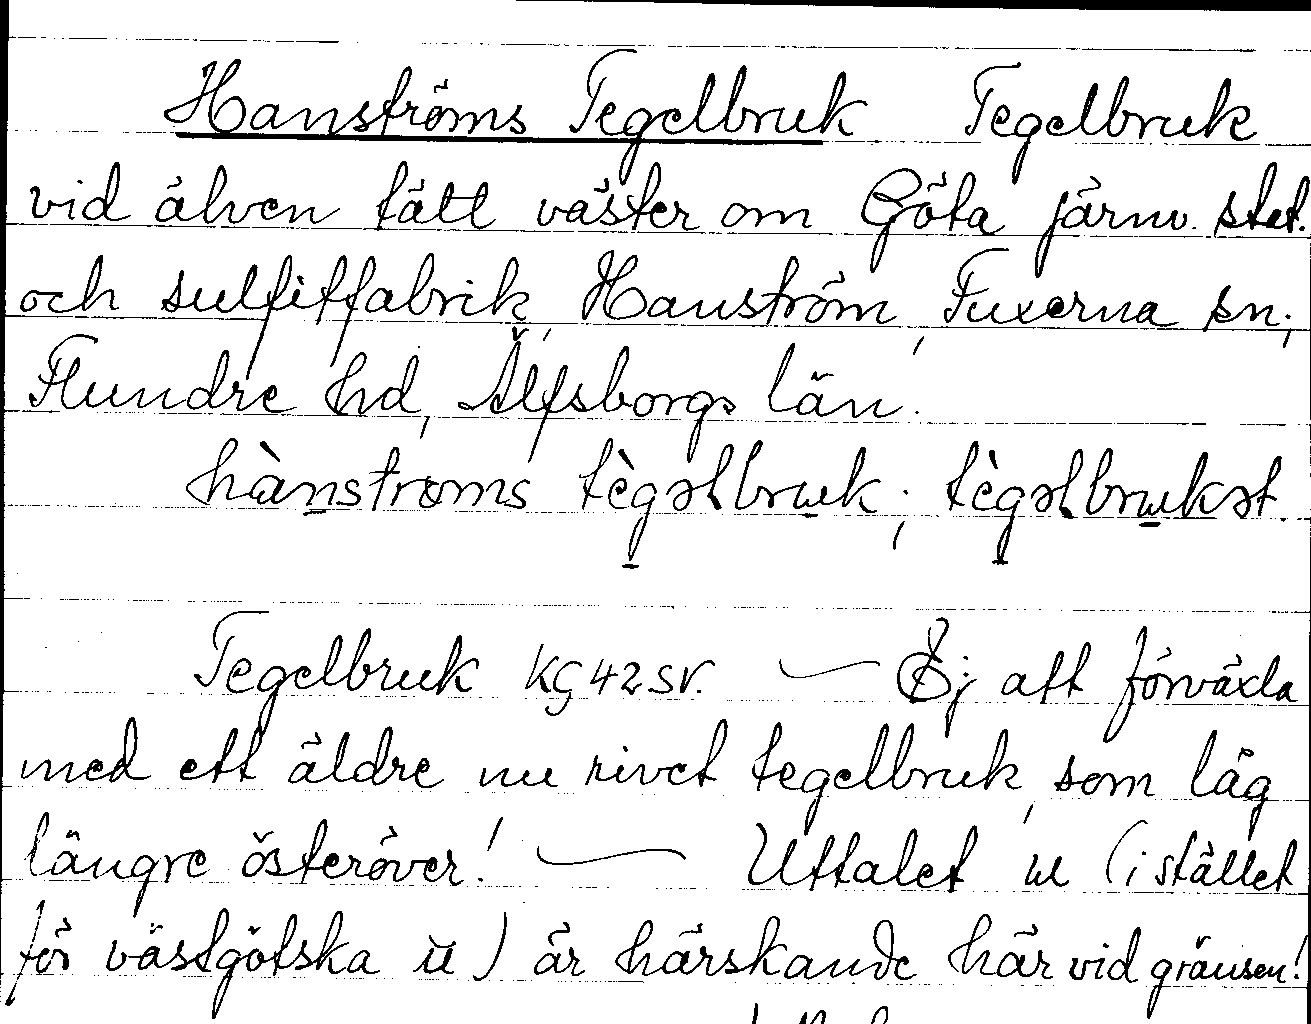 Hanströms Tegelbruk Tegelbruk
vid älven tätt väster om Göta järnv. stat.
och sulfitfabrik, Hanström, Fuxerna sn;
Flundre hd, Älfsborgs län.
hànstroms tègəlbrɯk; tègəlbrɯkət
Tegelbruk KG 42 SV. — Ej att förväxla
med ett äldre nu rivet tegelbruk, som låg
längre österöver! — Uttalet ɯ (i stället
för västgötska ü) är härskande här vid gränsen!